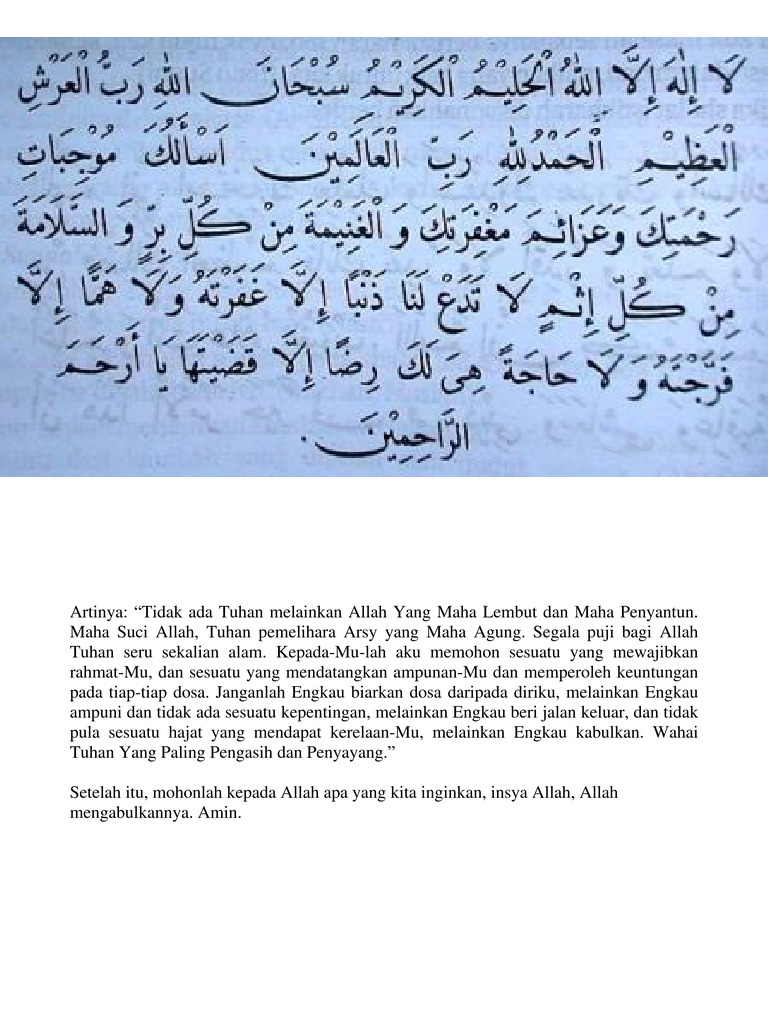 لَا إِلٰهَ إِلَّا اللهُ الْحَلِيْمُ الْكَرِيْمُ سُبْحَانَ اللهِ رَبُّ الْعَرْشِ
الْعَظِيْمِ الْحَمْدُ لِلّٰهِ رَبِّ الْعَالَمِيْنَ اَسْأَلُكَ مُوْجِبَاتِ
رَحْمَتِكَ وَعَزَائِمَ مَغْفِرَتِكَ وَ الْغَنِيْمَةَ مِنْ كُلِّ بِرٍّ وَ السَّلَامَةَ
مِنْ كُلِّ إِثْمٍ لَا تَدَعْ لَنَا ذَنْبًا إِلَّا غَفَرْتَهُ وَلَا هَمًّا إِلَّا
فَرَّجْتَهُ وَ لَا حَاجَةً هِىَ لَكَ رِضًا إِلَّا قَضَيْتَهَا يَا أَرْحَمَ
الرَّاحِمِيْنَ.
Artinya: “Tidak ada Tuhan melainkan Allah Yang Maha Lembut dan Maha Penyantun.
Maha Suci Allah, Tuhan pemelihara Arsy yang Maha Agung. Segala puji bagi Allah
Tuhan seru sekalian alam. Kepada-Mu-lah aku memohon sesuatu yang mewajibkan
rahmat-Mu, dan sesuatu yang mendatangkan ampunan-Mu dan memperoleh keuntungan
pada tiap-tiap dosa. Janganlah Engkau biarkan dosa daripada diriku, melainkan Engkau
ampuni dan tidak ada sesuatu kepentingan, melainkan Engkau beri jalan keluar, dan tidak
pula sesuatu hajat yang mendapat kerelaan-Mu, melainkan Engkau kabulkan. Wahai
Tuhan Yang Paling Pengasih dan Penyayang.”
Setelah itu, mohonlah kepada Allah apa yang kita inginkan, insya Allah, Allah
mengabulkannya. Amin.